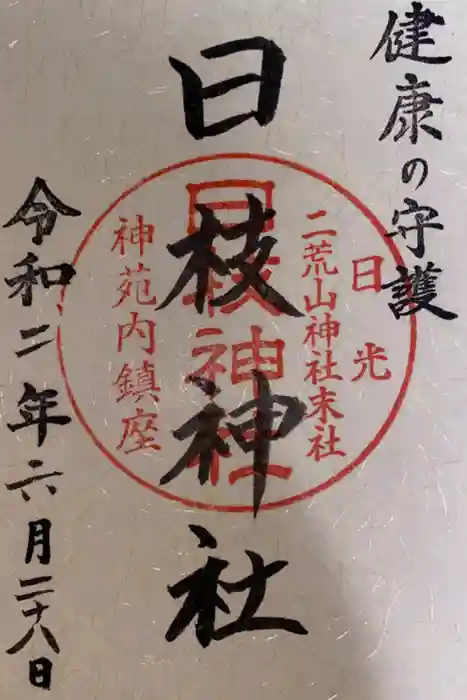 健康の守護
日枝神社
日光
二荒山神社末社
日枝神社
神苑内鎮座
令和二年六月二十八日